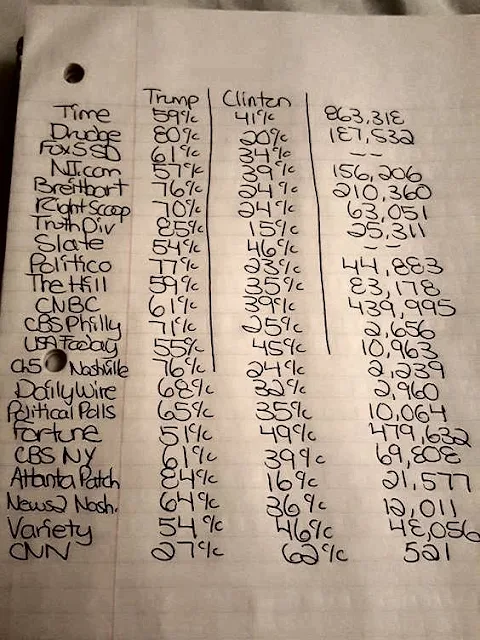 Trump Clinton
Time 59% 41% 863,318
Drudge 80% 20% 187,532
Fox5SD 61% 34% --
NJ.com 57% 39% 156,206
Breitbart 76% 24% 210,360
RightScoop 70% 24% 63,051
TruthDiv 85% 15% 25,311
Slate 54% 46% --
Politico 77% 23% 44,883
The Hill 59% 35% 83,178
CNBC 61% 39% 439,995
CBS Philly 71% 25% 2,656
USA Today 55% 45% 10,963
Ch5 Nashville 76% 24% 2,239
DailyWire 68% 32% 2,960
Political Polls 65% 35% 10,064
Fortune 51% 49% 479,632
CBS NY 61% 39% 69,808
Atlanta Patch 84% 16% 21,577
News2 Nash. 64% 36% 12,011
Variety 54% 46% 48,056
CNN 27% 62% 521